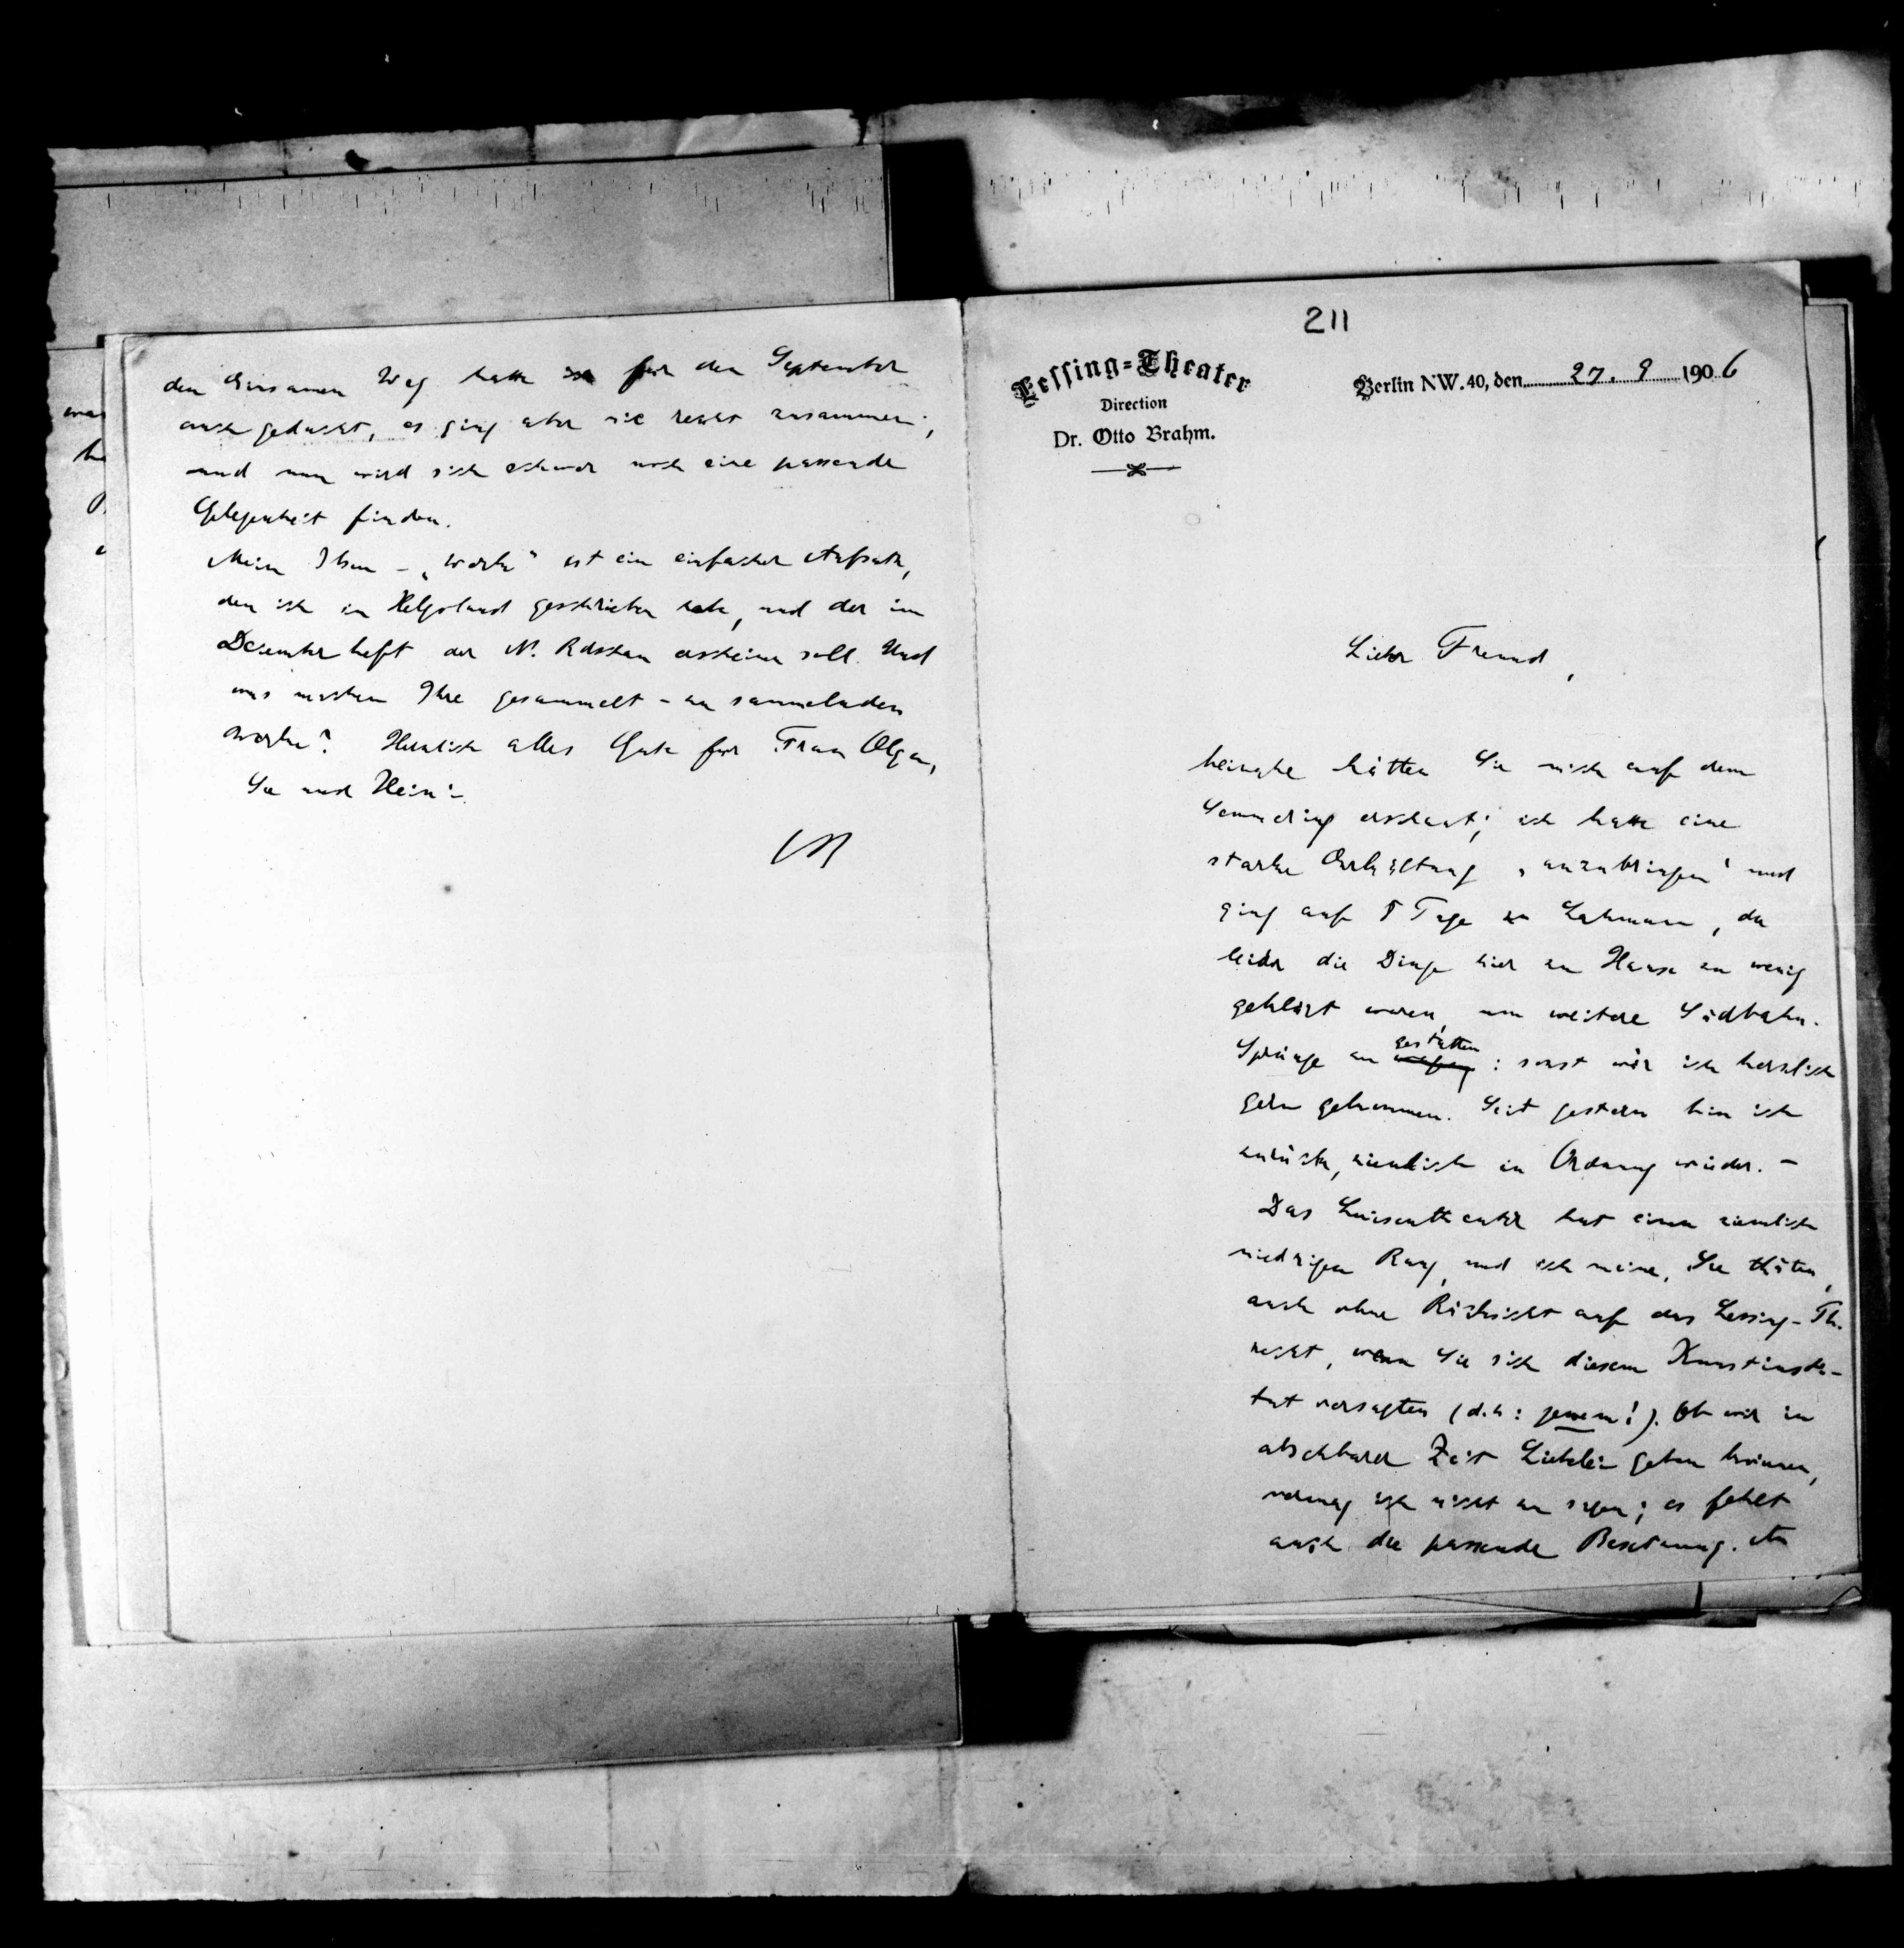 211
Lessing=Theater
Direction
Dr. Otto Brahm.
Berlin NW. 40, den 27. 9 1906
Lieber Freund,
beinahe hätten Sie mich auf dem
Semmering erschaut; ich hatte eine
starke Erkältung „anzubringen“ und
ging auf 8 Tage zu Lahmann, da
leider die Dinge hier zu Hause zu wenig
geklärt waren, um weitere Südbahn-
Sprünge zu gestatten: sonst wär ich herzlich
gern gekommen. Seit gestern bin ich
zurück, ziemlich in Ordnung wieder. –
Das Luisentheater hat einen ziemlich
niedrigen Rang, und ich meine, Sie thäten,
auch ohne Rücksicht auf das Lessing-Th.
recht, wenn Sie sich diesem Kunstinsti-
tut versagten (d.h: jenem!). Ob wir in
absehbarer Zeit Liebelei geben können,
vermag ich nicht zu sagen; es fehlt
auch die passende Besetzung. An
den Einsamen Weg hatte ich für den September
auch gedacht, es ging aber nie recht zusammen;
und nun wird sich schwer noch eine passende
Gelegenheit finden.
Mein Ibsen-„Werk“ ist ein einfacher Aufsatz,
den ich in Helgoland geschrieben habe, und der im
Dezemberheft der N. Rdschau erscheinen soll. Und
was machen Ihre gesammelt-zu sammelnden
Werke? Herzlich alles Gute für Frau Olga,
Sie und Heini.